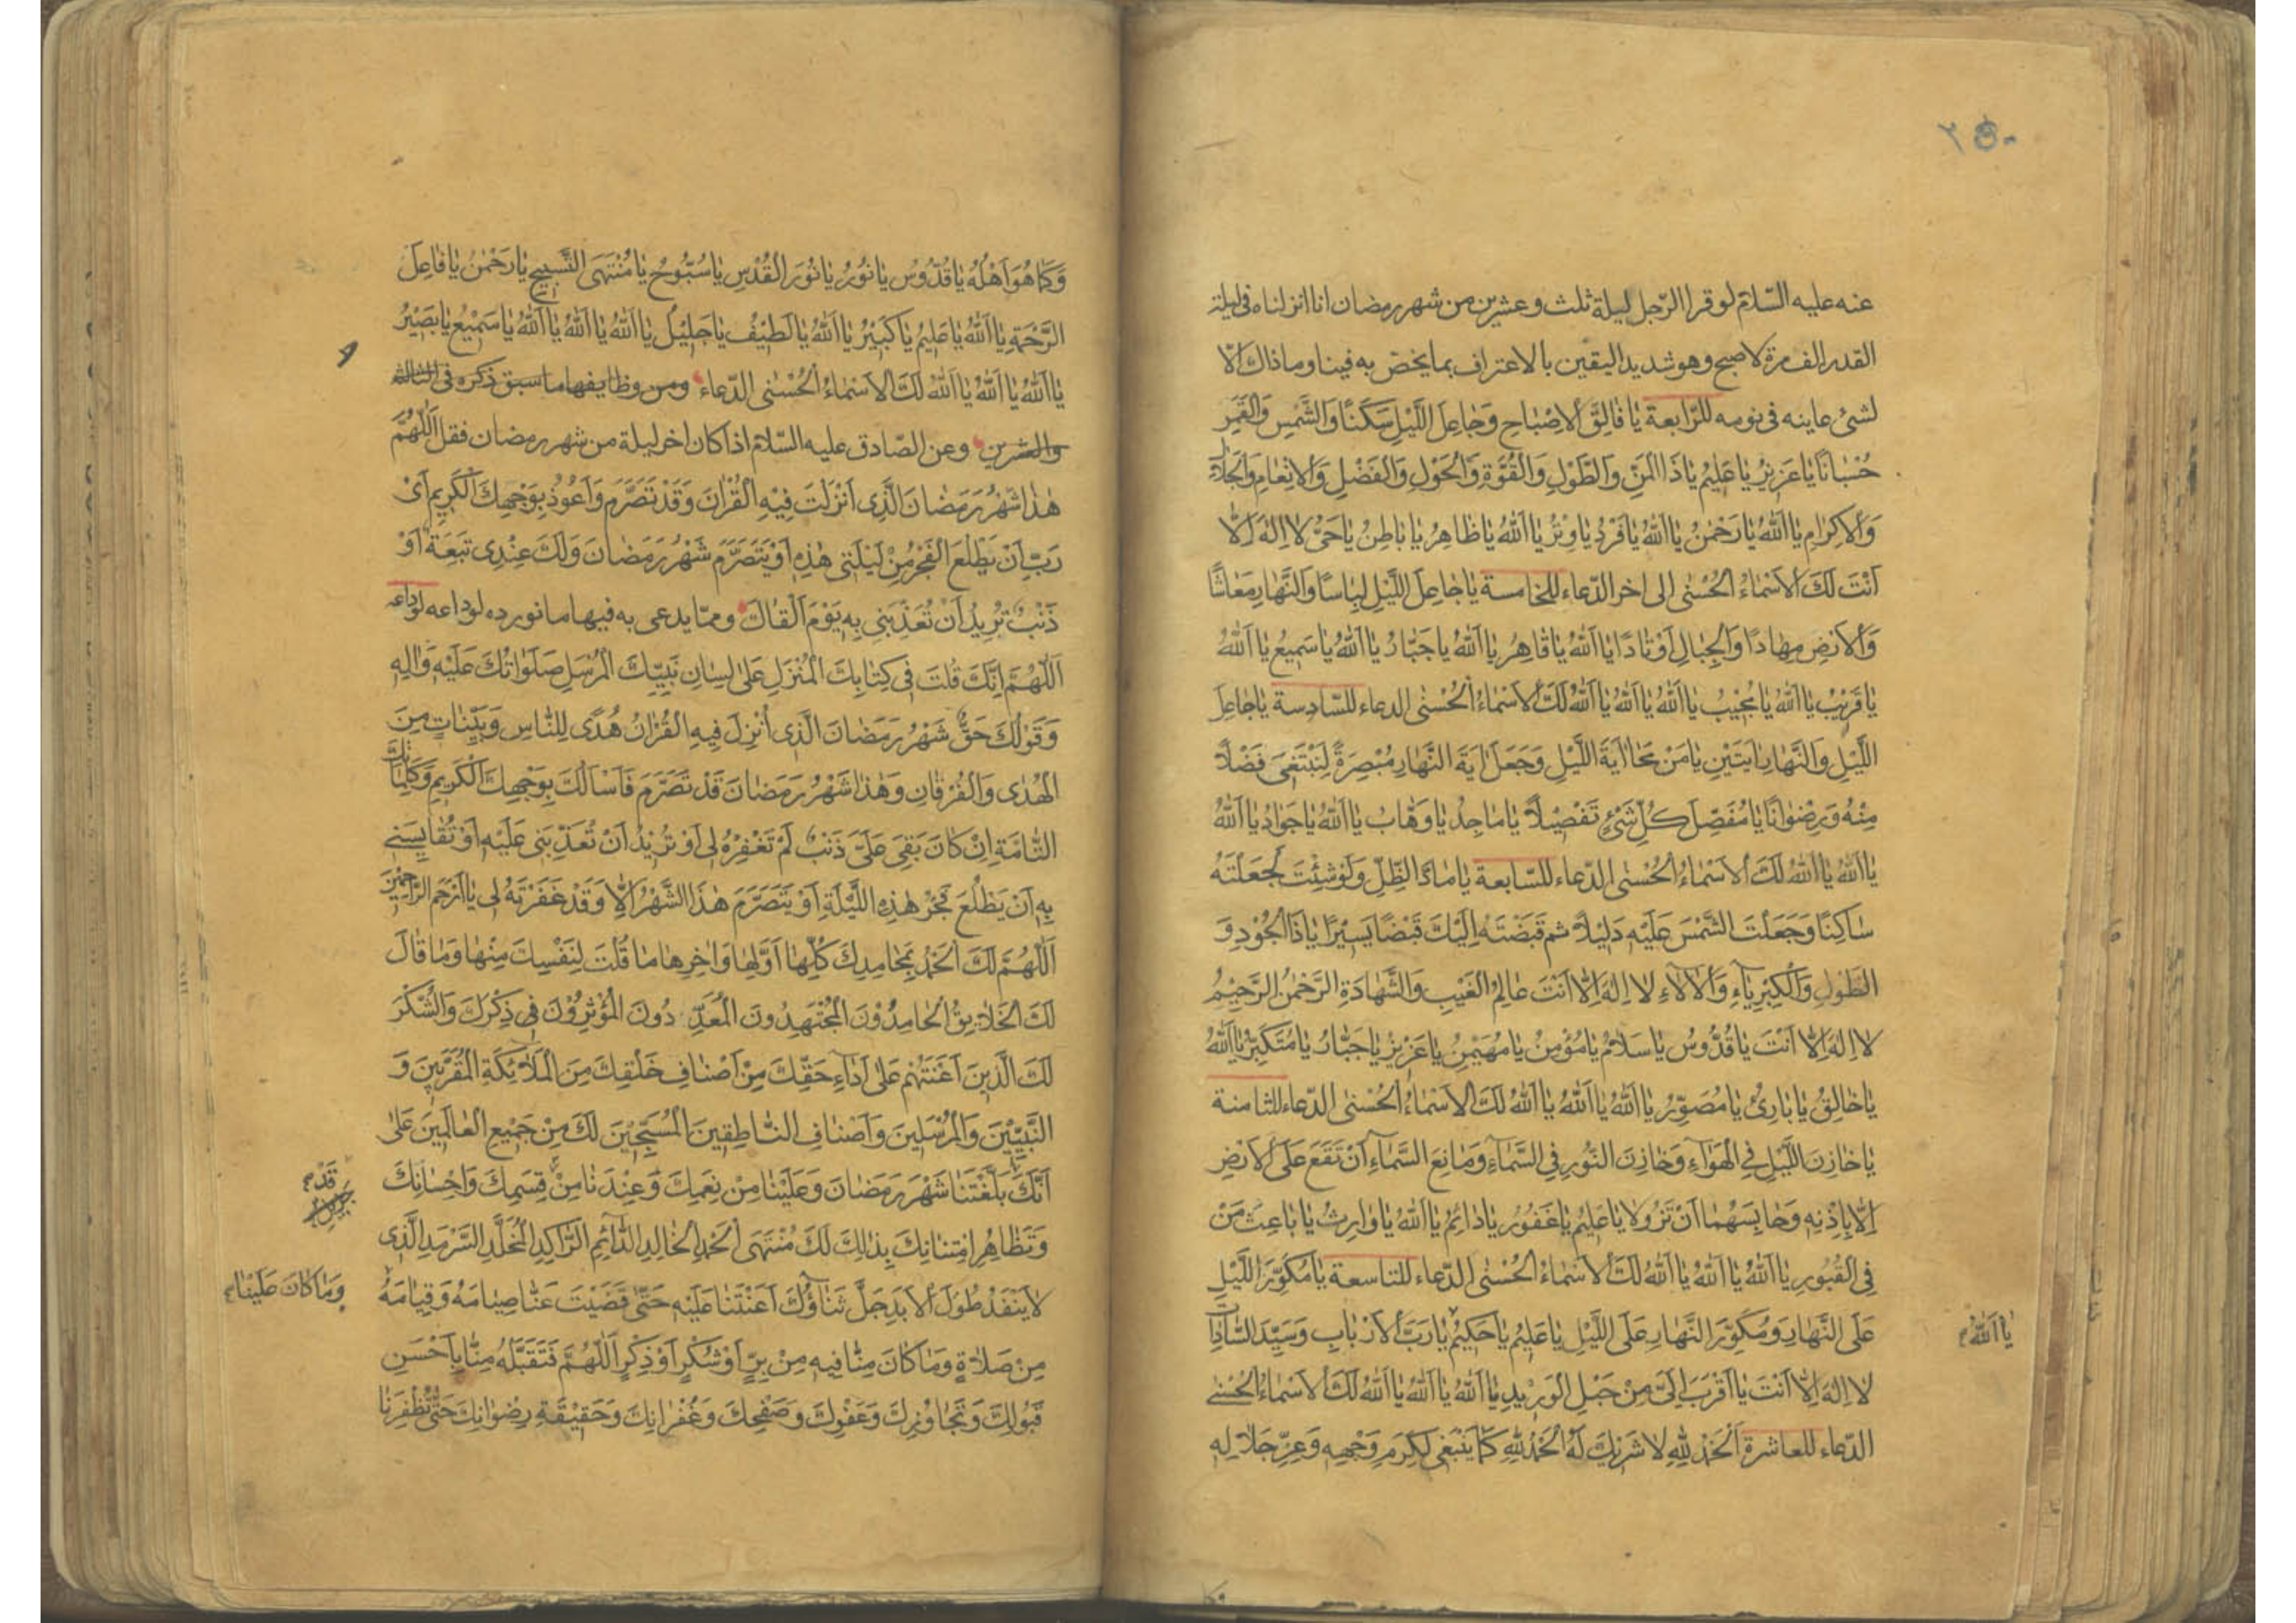 ٢٥٠
عنه عليه السّلام لو قرا الرّجل ليلة ثلث و عشرين من شهر رمضان انا انزلناه فى ليلة
القدر الف مرة لاصبح وهو شديد اليقين بالاعتراف بما يخصّ به فينا وما ذاك الّا
لشئ عاينه فى نومه للرّابعة يَا فَالِقَ الاِصْبَاحِ وَجَاعِلَ اللَّيْلِ سَكَنًا وَالشَّمْسِ وَالْقَمَرِ
حُسْبَانًا يَا عَزِيْزُ يَا عَلِيْمُ يَا ذَا الْمَنِّ وَالطَّوْلِ وَالْقُوَّةِ وَالْحَوْلِ وَالْفَضْلِ وَالاِنْعَامِ وَالْجَلَالِ
وَالاِكْرَامِ يَا اَللّٰهُ يَا رَحْمٰنُ يَا اَللّٰهُ يَا فَرْدُ يَا وِتْرُ يَا اَللّٰهُ يَا ظَاهِرُ يَا بَاطِنُ يَا حَىُّ لَا اِلٰهَ اِلَّا
اَنْتَ لَكَ الاَسْمَاءُ الْحُسْنٰى الى اخر الدّعاء للخامسة يَا جَاعِلَ اللَّيْلِ لِبَاسًا وَالنَّهَارِ مَعَاشًا
وَالاَرْضِ مِهَادًا وَالْجِبَالِ اَوْتَادًا يَا اَللّٰهُ يَا قَاهِرُ يَا اَللّٰهُ يَا جَبَّارُ يَا اَللّٰهُ يَا سَمِيْعُ يَا اَللّٰهُ
يَا قَرِيْبُ يَا اَللّٰهُ يَا مُجِيْبُ يَا اَللّٰهُ يَا اَللّٰهُ يَا اَللّٰهُ لَكَ الاَسْمَاءُ الْحُسْنٰى الدعاء للسّادسة يَا جَاعِلَ
اللَّيْلِ وَالنَّهَارِ اٰيَتَيْنِ يَا مَنْ مَحَا اٰيَةَ اللَّيْلِ وَجَعَلَ اٰيَةَ النَّهَارِ مُبْصِرَةً لِنَبْتَغِىَ فَضْلًا
مِنْهُ وَرِضْوَانًا يَا مُفَصِّلَ كُلِّ شَىْءٍ تَفْصِيْلًا يَا مَاجِدُ يَا وَهَّابُ يَا اَللّٰهُ يَا جَوَادُ يَا اَللّٰهُ
يَا اَللّٰهُ يَا اَللّٰهُ لَكَ الاَسْمَاءُ الْحُسْنٰى الدّعاء للسّابعة يَا مَادَّ الظِّلِّ وَلَوْ شِئْتَ لَجَعَلْتَهُ
سَاكِنًا وَجَعَلْتَ الشَّمْسَ عَلَيْهِ دَلِيْلًا ثم قَبَضْتَهُ اِلَيْكَ قَبْضًا يَسِيْرًا يَا ذَا الْجُوْدِ وَ
الطَّوْلِ وَالْكِبْرِيَاءِ وَالاٰلَاءِ لَا اِلٰهَ اِلَّا اَنْتَ عَالِمُ الْغَيْبِ وَالشَّهَادَةِ الرَّحْمٰنُ الرَّحِيْمُ
لَا اِلٰهَ اِلَّا اَنْتَ يَا قُدُّوْسُ يَا سَلَامُ يَا مُؤْمِنُ يَا مُهَيْمِنُ يَا عَزِيْزُ يَا جَبَّارُ يَا مُتَكَبِّرُ يَا اَللّٰهُ
يَا خَالِقُ يَا بَارِئُ يَا مُصَوِّرُ يَا اَللّٰهُ يَا اَللّٰهُ يَا اَللّٰهُ لَكَ الاَسْمَاءُ الْحُسْنٰى الدّعاء للثامنة
يَا خَازِنَ اللَّيْلِ فِى الْهَوَاءِ وَخَازِنَ النُّوْرِ فِى السَّمَاءِ وَمَانِعَ السَّمَاءِ اَنْ تَقَعَ عَلَى الاَرْضِ
اِلَّا بِاِذْنِهِ وَحَابِسَهُمَا اَنْ تَزُوْلَا يَا عَلِيْمُ يَا غَفُوْرُ يَا دَائِمُ يَا اَللّٰهُ يَا وَارِثُ يَا بَاعِثَ مَنْ
فِى الْقُبُوْرِ يَا اَللّٰهُ يَا اَللّٰهُ يَا اَللّٰهُ لَكَ الاَسْمَاءُ الْحُسْنٰى الدّعاء للتاسعة يَا مُكَوِّرَ اللَّيْلِ
عَلَى النَّهَارِ وَمُكَوِّرَ النَّهَارِ عَلَى اللَّيْلِ يَا عَلِيْمُ يَا حَكِيْمُ يَا رَبَّ الاَرْبَابِ وَسَيِّدَ السَّادَاتِ
يَا اَللّٰهُ
لَا اِلٰهَ اِلَّا اَنْتَ يَا اَقْرَبَ اِلَىَّ مِنْ حَبْلِ الْوَرِيْدِ يَا اَللّٰهُ يَا اَللّٰهُ يَا اَللّٰهُ لَكَ الاَسْمَاءُ الْحُسْنٰى
الدّعاء للعاشرة اَلْحَمْدُ لِلّٰهِ لَا شَرِيْكَ لَهُ اَلْحَمْدُ لِلّٰهِ كَمَا يَنْبَغِى لِكَرَمِ وَجْهِهِ وَعِزِّ جَلَالِهِ
وَكَمَا هُوَ اَهْلُهُ يَا قُدُّوْسُ يَا نُوْرُ يَا نُوْرَ الْقُدْسِ يَا سُبُّوْحُ يَا مُنْتَهَى التَّسْبِيْحِ يَا رَحْمٰنُ يَا فَاعِلَ
الرَّحْمَةِ يَا اَللّٰهُ يَا عَلِيْمُ يَا كَبِيْرُ يَا اَللّٰهُ يَا لَطِيْفُ يَا جَلِيْلُ يَا اَللّٰهُ يَا اَللّٰهُ يَا اَللّٰهُ يَا سَمِيْعُ يَا بَصِيْرُ
يَا اَللّٰهُ يَا اَللّٰهُ يَا اَللّٰهُ لَكَ الاَسْمَاءُ الْحُسْنٰى الدّعاء ومن وظايفها ما سبق ذكره فى الثالثة
والعشرين وعن الصّادق عليه السّلام اذا كان اخر ليلة من شهر رمضان فقل اَللّٰهُمَّ
هٰذَا شَهْرُ رَمَضَانَ الَّذِى اَنْزَلْتَ فِيْهِ الْقُرْاٰنَ وَقَدْ تَصَرَّمَ وَاَعُوْذُ بِوَجْهِكَ الْكَرِيْمِ اَىْ
رَبِّ اَنْ يَطْلُعَ الْفَجْرُ مِنْ لَيْلَتِى هٰذِهِ اَوْ يَتَصَرَّمَ شَهْرُ رَمَضَانَ وَلَكَ عِنْدِى تَبِعَةٌ اَوْ
ذَنْبٌ تُرِيْدُ اَنْ تُعَذِّبَنِى بِهِ يَوْمَ اَلْقَاكَ وممّا يدعى به فيها ما نورده لوداعه لوداعه
اَللّٰهُمَّ اِنَّكَ قُلْتَ فِى كِتَابِكَ الْمُنْزَلِ عَلٰى لِسَانِ نَبِيِّكَ الْمُرْسَلِ صَلَوَاتُكَ عَلَيْهِ وَاٰلِهِ
وَقَوْلُكَ حَقٌّ شَهْرُ رَمَضَانَ الَّذِى اُنْزِلَ فِيهِ الْقُرْاٰنُ هُدًى لِلنَّاسِ وَبَيِّنَاتٍ مِنَ
الْهُدٰى وَالْفُرْقَانِ وَهٰذَا شَهْرُ رَمَضَانَ قَدْ تَصَرَّمَ فَاَسْاَلُكَ بِوَجْهِكَ الْكَرِيْمِ وَكَلِمَاتِكَ
التَّامَّةِ اِنْ كَانَ بَقِىَ عَلَىَّ ذَنْبٌ لَمْ تَغْفِرْهُ لِى اَوْ تُرِيْدُ اَنْ تُعَذِّبَنِى عَلَيْهِ اَوْ تُقَايِسَنِى
بِهِ اَنْ يَطْلُعَ فَجْرُ هٰذِهِ اللَّيْلَةِ اَوْ يَتَصَرَّمَ هٰذَا الشَّهْرُ اِلَّا وَقَدْ غَفَرْتَهُ لِى يَا اَرْحَمَ الرَّاحِمِيْنَ
اَللّٰهُمَّ لَكَ الْحَمْدُ بِمَحَامِدِكَ كُلِّهَا اَوَّلِهَا وَاٰخِرِهَا مَا قُلْتَ لِنَفْسِكَ مِنْهَا وَمَا قَالَ
لَكَ الْخَلَائِقُ الْحَامِدُوْنَ الْمُجْتَهِدُوْنَ الْمُعَدِّدُونَ الْمُؤْثِرُوْنَ فِى ذِكْرِكَ وَالشُّكْرَ
لَكَ الَّذِيْنَ اَعَنْتَهُمْ عَلٰى اَدَاءِ حَقِّكَ مِنْ اَصْنَافِ خَلْقِكَ مِنَ الْمَلَائِكَةِ الْمُقَرَّبِيْنَ وَ
النَّبِيِّيْنَ وَالْمُرْسَلِيْنَ وَاَصْنَافِ النَّاطِقِيْنَ الْمُسَبِّحِيْنَ لَكَ مِنْ جَمِيْعِ الْعَالَمِيْنَ عَلٰى
اَنَّكَ بَلَّغْتَنَا شَهْرَ رَمَضَانَ وَعَلَيْنَا مِنْ نِعَمِكَ وَعِنْدَنَا مِنْ قِسَمِكَ وَاِحْسَانِكَ
وَتَظَاهُرِ امْتِنَانِكَ بِذٰلِكَ لَكَ مُنْتَهَى الْحَمْدِ الْخَالِدِ الدَّائِمِ الرَّاكِدِ الْمُخَلَّدِ السَّرْمَدِ الَّذِى
لَا يَنْفَدُ طُوْلَ الاَبَدِ جَلَّ ثَنَاؤُكَ اَعَنْتَنَا عَلَيْهِ حَتّٰى قَضَيْتَ عَنَّا صِيَامَهُ وَقِيَامَهُ
وَمَا كَانَ عَلَيْنَا
مِنْ صَلَاةٍ وَمَا كَانَ مِنَّا فِيهِ مِنْ بِرٍّ اَوْ شُكْرٍ اَوْ ذِكْرٍ اَللّٰهُمَّ فَتَقَبَّلْهُ مِنَّا بِاَحْسَنِ
قَبُوْلِكَ وَتَجَاوُزِكَ وَعَفْوِكَ وَصَفْحِكَ وَغُفْرَانِكَ وَحَقِيْقَةِ رِضْوَانِكَ حَتّٰى تُظْفِرَنَا